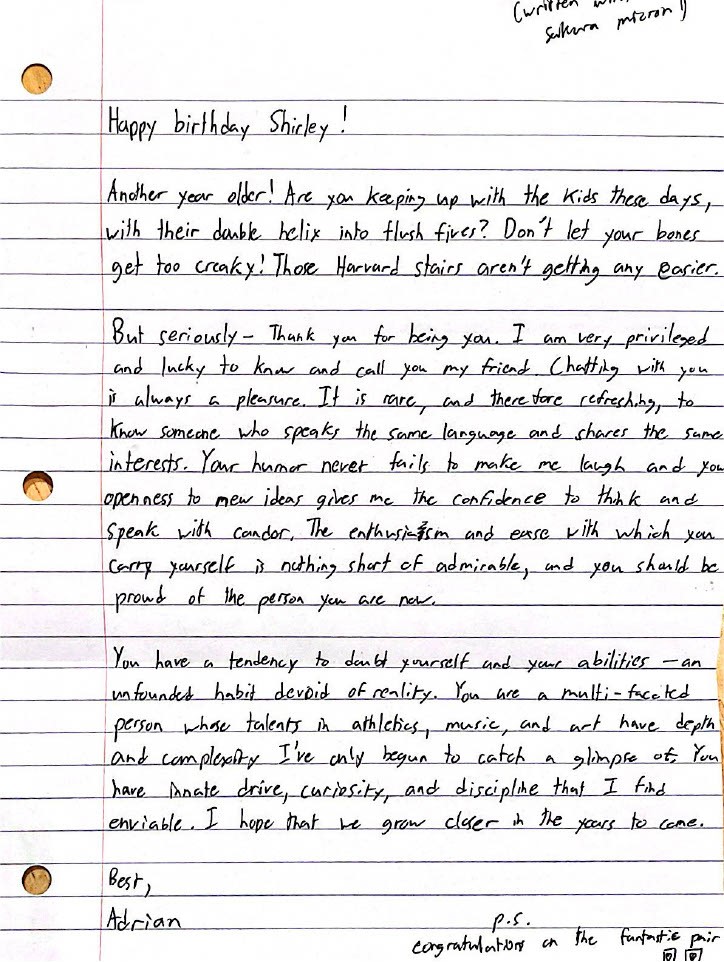 (written
sakura micron!)
Happy birthday Shirley!
Another year older! Are you keeping up with the kids these days,
with their double helix into flush fives? Don't let your bones
get too creaky! Those Harvard stairs aren't getting any easier.
But seriously - Thank you for being you. I am very privileged
and lucky to know and call you my friend. Chatting with you
is always a pleasure. It is rare, and therefore refreshing, to
know someone who speaks the same language and shares the same
interests. Your humor never fails to make me laugh and you
openness to new ideas gives me the confidence to think and
speak with candor. The enthusiasm and ease with which you
carry yourself is nothing short of admirable, and you should be
proud of the person you are now.
You have a tendency to doubt yourself and your abilities - an
unfounded habit devoid of reality. You are a multi-faceted
person whose talents in athletics, music, and art have depth
and complexity I've only begun to catch a glimpse of. You
have innate drive, curiosity, and discipline that I find
enviable. I hope that we grow closer in the years to come.
Best,
Adrian
p.s.
congratulations on the fantastic pair